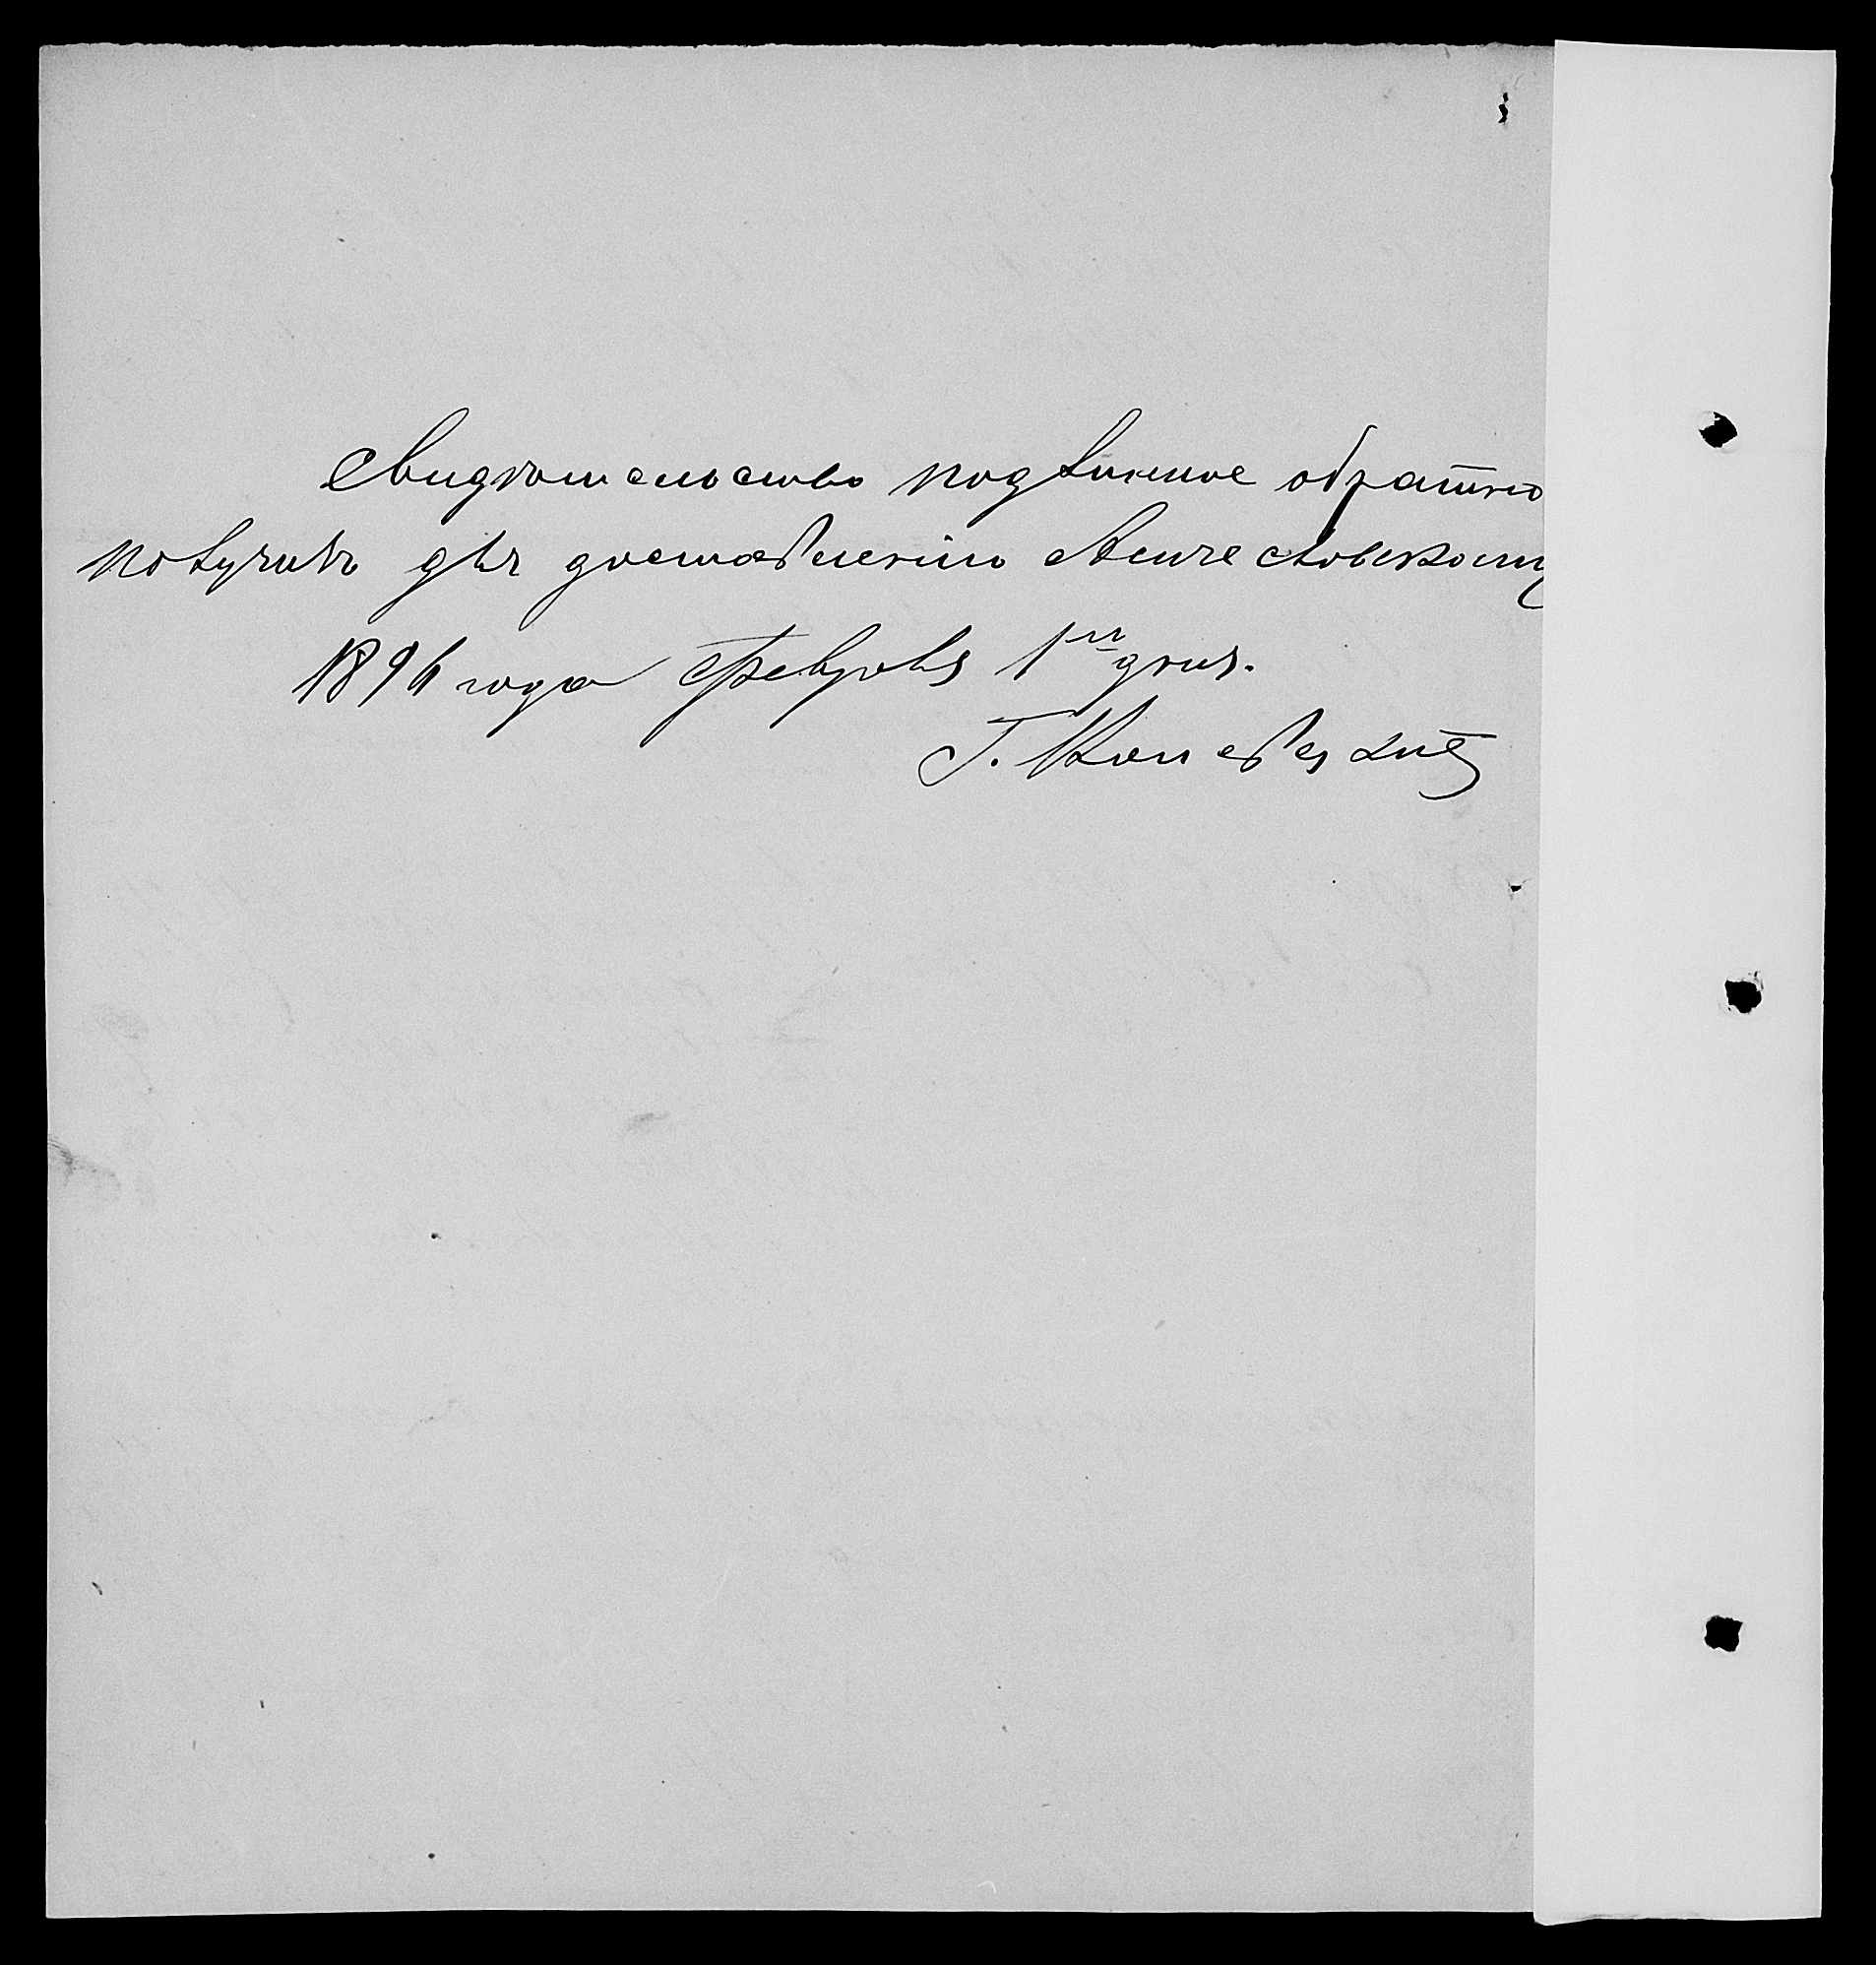 Свидѣтельство подлинное обратно
получилъ для доставленію
1896 года Февраля 1го дня.
Г.